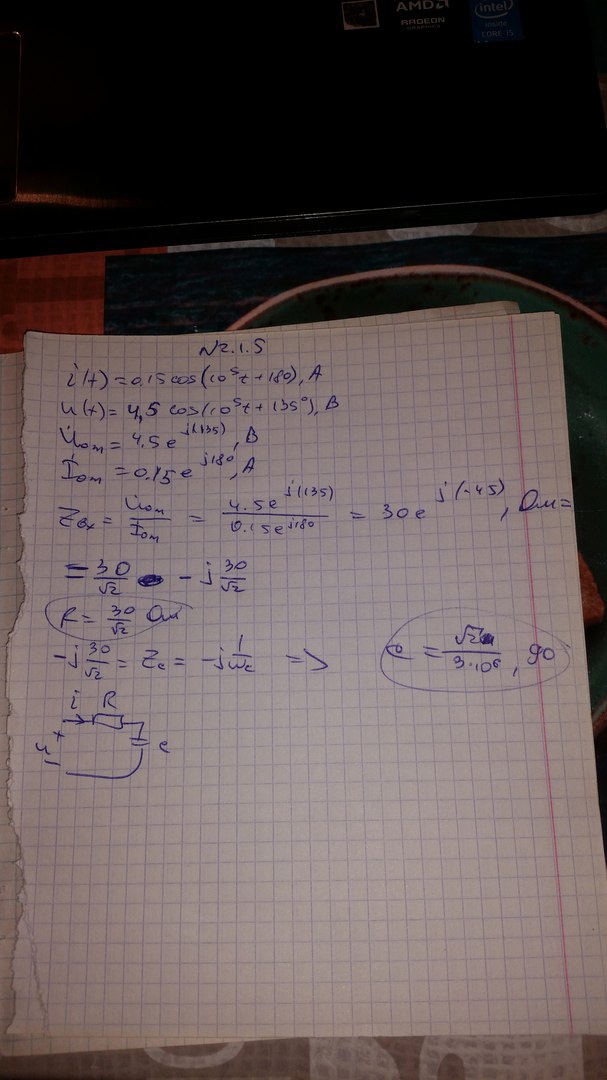 AMD
RADEON
GRAPHICS
intel
inside
CORE i5
№2.1.5
i(t) = 0,15 cos(10⁵t + 180), A
u(t) = 4,5 cos(10⁵t + 135°), B
U̇om = 4.5 e^j(135), B
İom = 0.15 e^j180, A
Zвх = U̇om/İom = 4.5e^j(135)/0.15e^j180 = 30e^j(-45), Ом =
= 30/√2 - j 30/√2
R = 30/√2 Ом
-j 30/√2 = Zc = -j 1/ωc => c = √2/3·10⁶, Ф
i R
u + − c